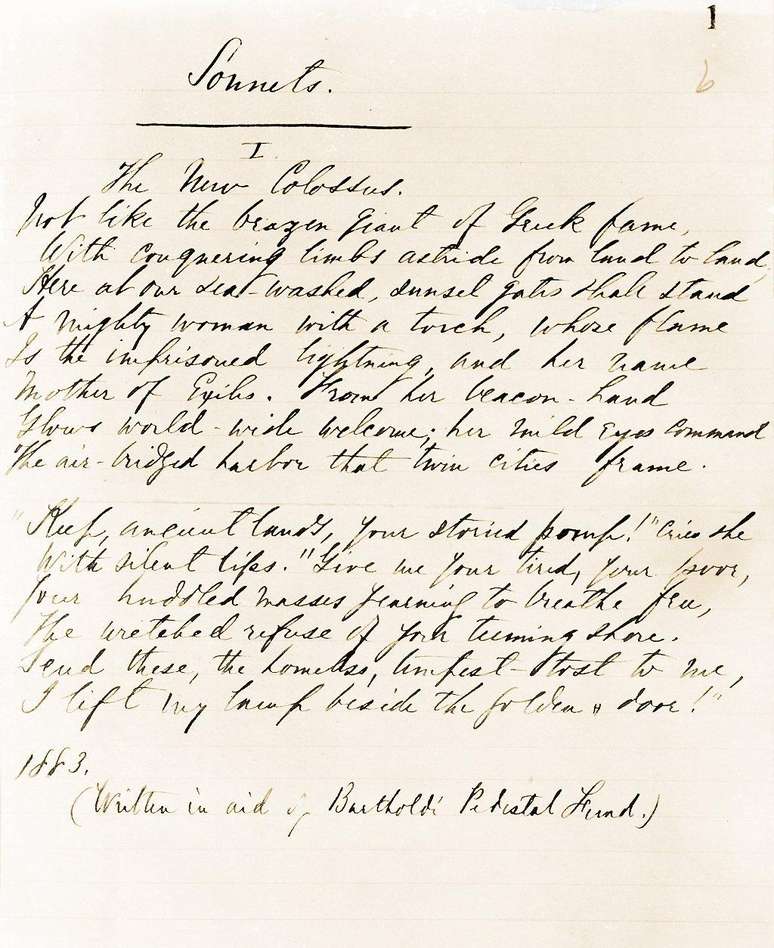 1
6
Sonnets.
I
The New Colossus.
Not like the brazen giant of Greek fame,
With conquering limbs astride from land to land,
Here at our sea-washed, sunset gates shall stand
A mighty woman with a torch, whose flame
Is the imprisoned lightning, and her name
Mother of Exiles. From her beacon-hand
Glows world-wide welcome; her mild eyes command
The air-bridged harbor that twin cities frame.
"Keep, ancient lands, your storied pomp!" cries she
With silent lips. "Give me your tired, your poor,
Your huddled masses yearning to breathe free,
The wretched refuse of your teeming shore.
Send these, the homeless, tempest-tost to me,
I lift my lamp beside the golden door!"
1883.
(Written in aid of Bartholdi Pedestal Fund.)